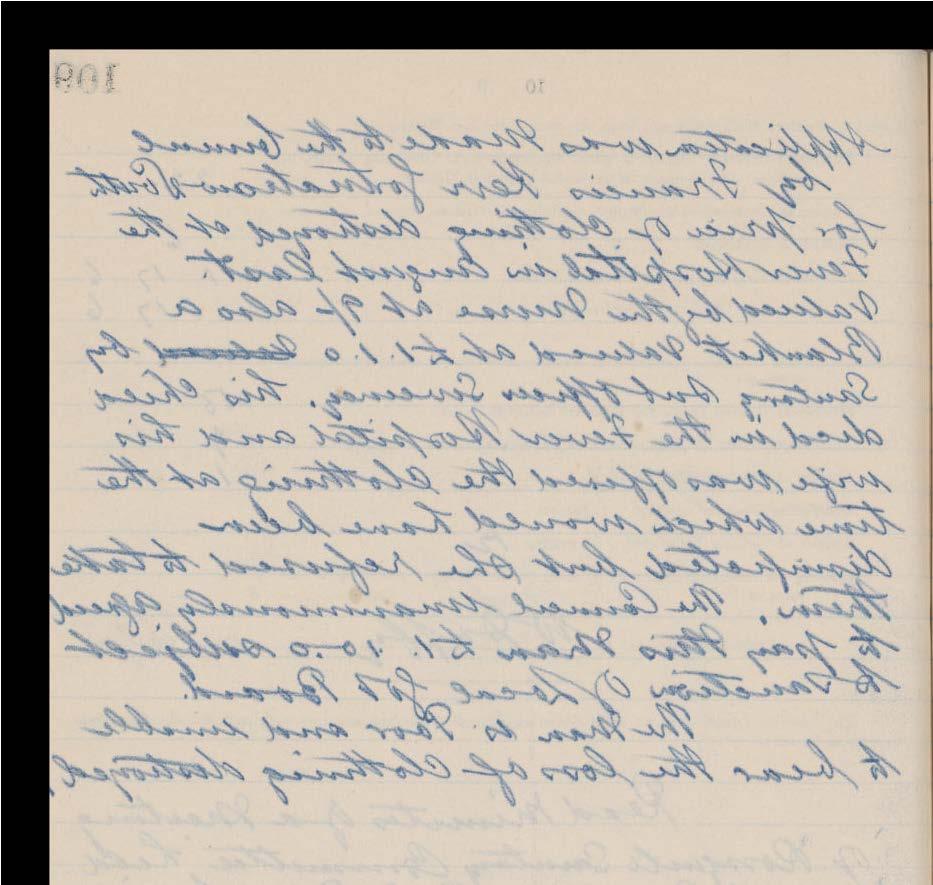 109
10
Application was made to the Council
by Francis Kerr
for price of clothing destroyed at the
Fever Hospital in August last.
Valued by the Nurse at 9/- also a
Blanket valued at £1.1.0 by
Sanitary Sub Officer Sweeney. his child
died in the Fever Hospital and his
wife was offered the clothing at the
time which would have been
disinfected but she refused to take
them. The Council unanimously agreed
to pay this man £1.10.0 subject
to sanction of Local Gov Board.
The Man is Poor and unable
to bear the loss of clothing destroyed,
Read Minutes of a Meeting
of Sanitary Committee held